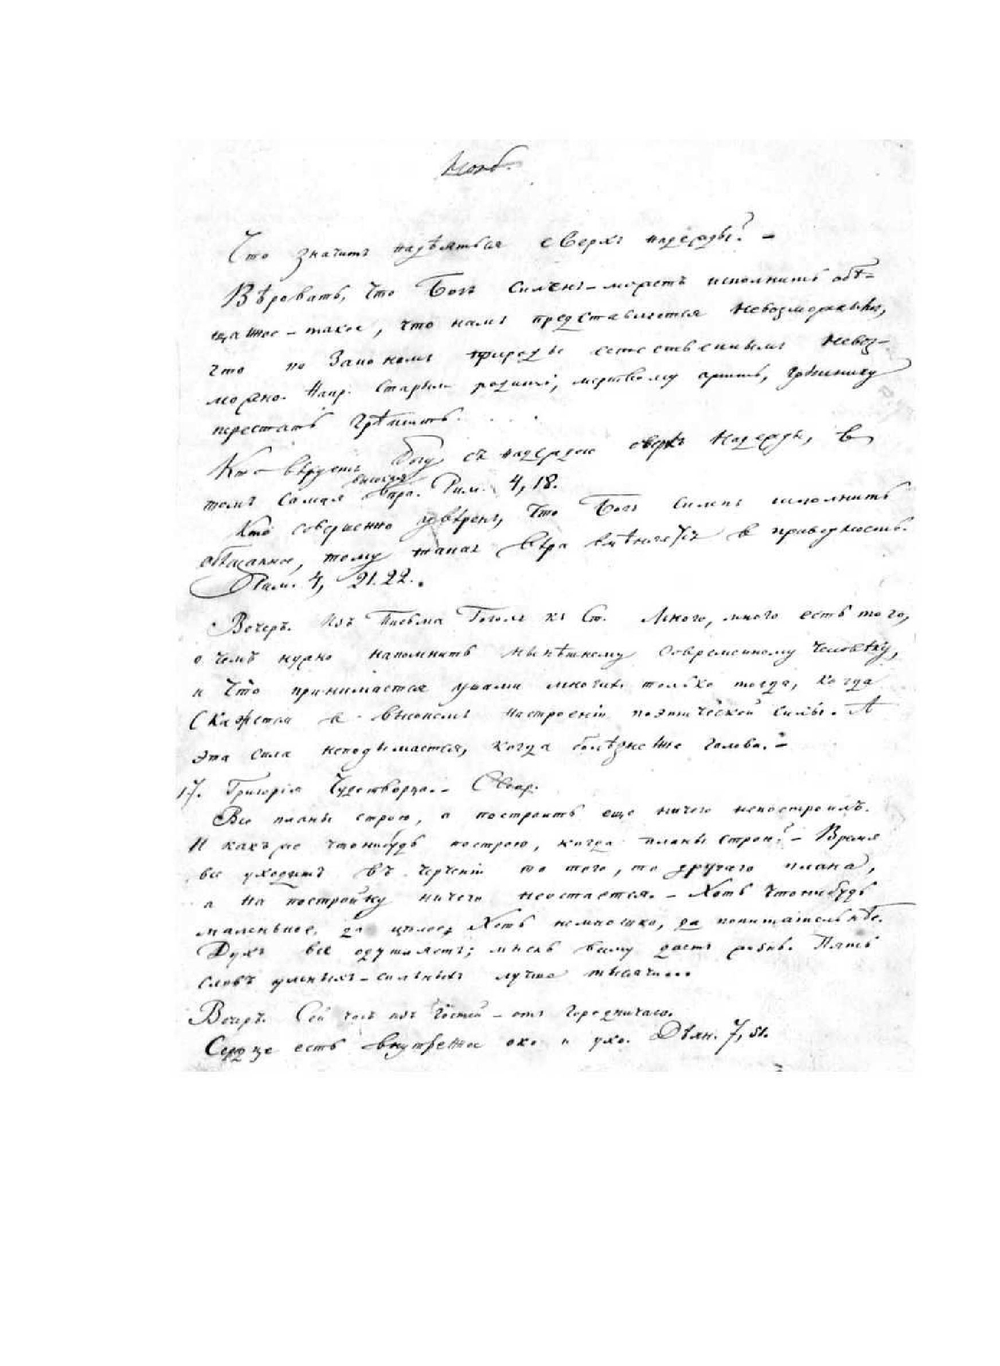 Нояб.
Что значитъ надѣяться сверхъ надежды? –
Вѣровать, что Богъ силенъ – можетъ исполнить обѣ-
щанное – такое, что намъ представляется невозможнымъ,
что по законамъ природы естественнымъ невоз-
можно. Напр. старымъ родить, мертвому ожить, грѣшнику
перестать грѣшить. . . .
Кто вѣруетъ Богу съ надеждою сверхъ надежды, въ
томъ самая вѣра. Рим. 4, 18.
Кто совершенно увѣренъ, что Богъ силенъ исполнить
обѣщанное, тому такая вѣра вмѣняется в праведность.
Рим. 4, 21. 22.
Вечеръ. Изъ Письма Гоголя къ Ст. Много, много есть того,
о чемъ нужно напомнить нынѣшнему современному человѣку,
и что принимается ушами многихъ только тогда, когда
скажется в высокомъ настроеніи поэтической силы. А
эта сила неподымается, когда болѣзненна голова. –
17. Григорія Чудотворца. –
Все планы строю, а построить еще ничего непостроилъ.
И какъ же чтонибудь построю, когда планы строю? – Время
все уходитъ въ черченіи то того, то другаго плана,
а на постройку ничего неостается. – Хоть чтонибудь
маленькое, да цѣлое, хоть немножко, да попитательнѣе.
Духъ все одушляетъ; мысль всему дастъ жизнь. Пять
словъ умныхъ – сильныхъ лучше тысячи...
Вечеръ. Сей часъ изъ гостей – отъ городничаго.
Сердце есть внутренное око и ухо. Дѣян. 7, 51.